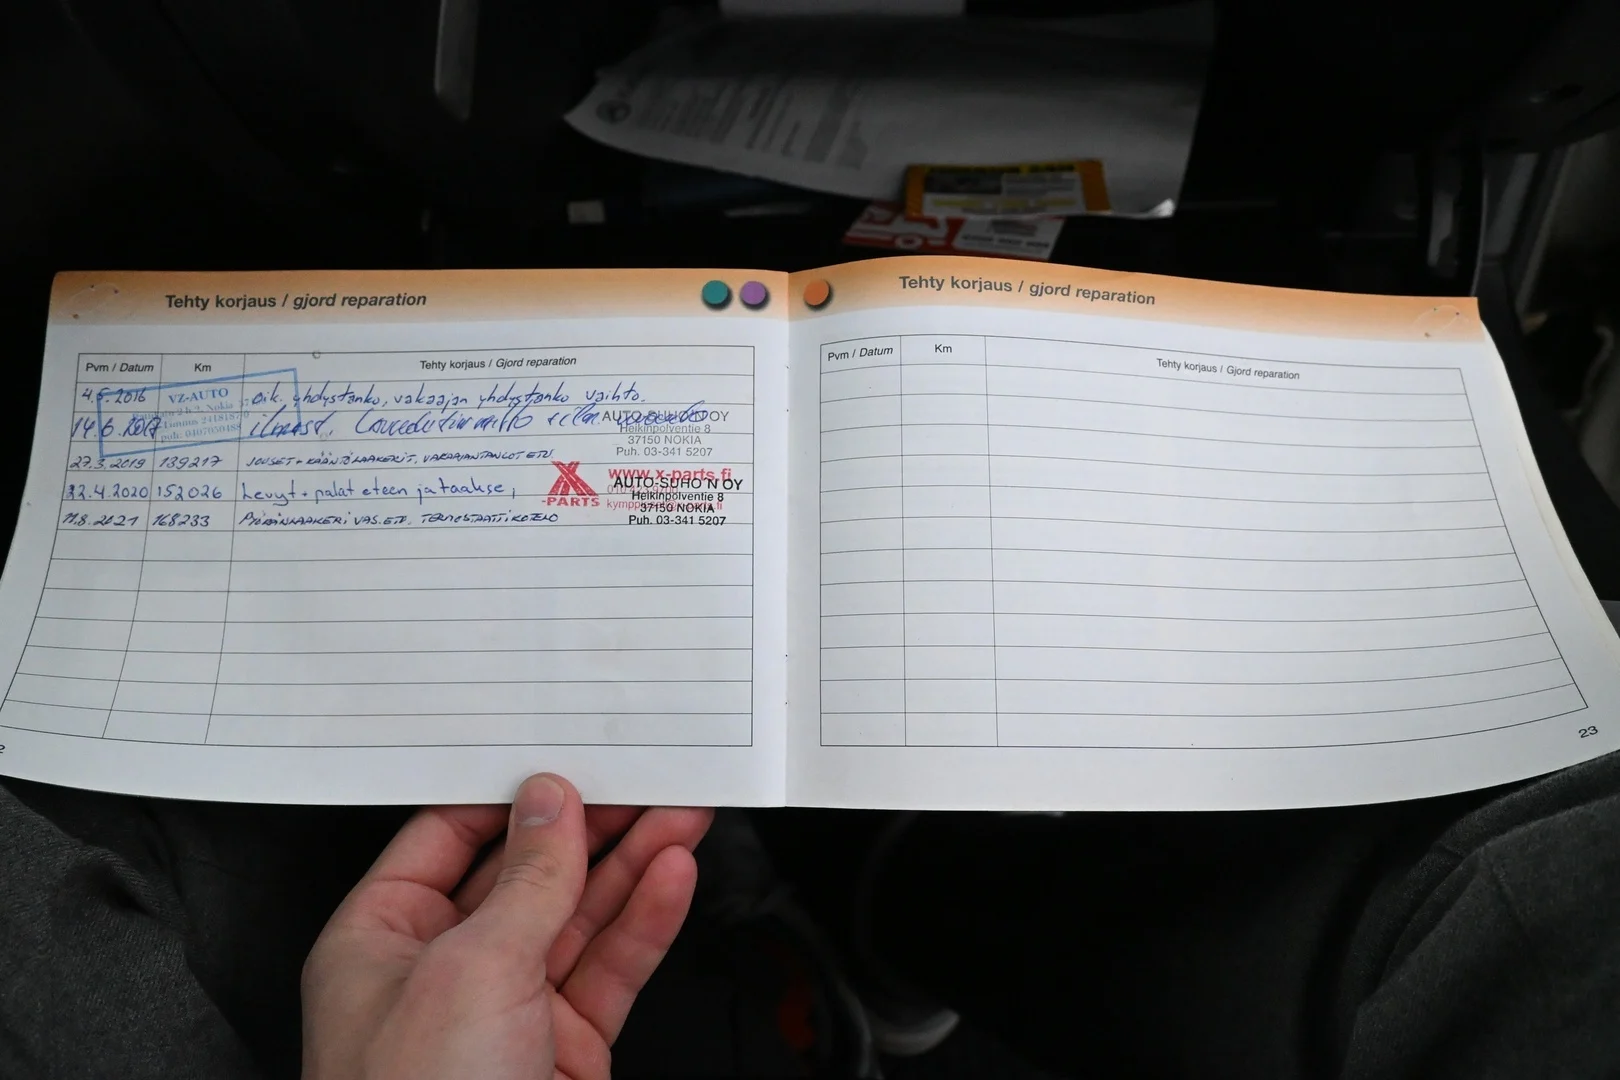 Tehty korjaus / gjord reparation
Pvm / Datum Km Tehty korjaus / Gjord reparation
4.5.2016 oik. yhdystanko, vakaajan yhdystanko vaihto.
VZ-AUTO
14.6.2017
AUTO-SUHO'N OY
Heikinpolventie 8
37150 NOKIA
Puh. 03-341 5207
27.3.2019 139217 JOUSET + KÄÄNTÖLAAKERIT, VAKAAJANTANGOT ETU
22.4.2020 152026 Levyt + palat eteen ja taakse,
X-PARTS
www.x-parts.fi
11.8.2021 168233 PYÖRÄNLAAKERI VAS.ETU, TERMOSTAATTIKOTELO
AUTO-SUHO'N OY
Heikinpolventie 8
37150 NOKIA
Puh. 03-341 5207
Tehty korjaus / gjord reparation
Pvm / Datum Km Tehty korjaus / Gjord reparation
23